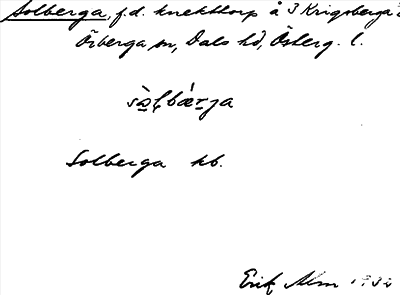 Solberga, f.d. knekttorp å 3 Krigsberga
Örberga sn, Dals hd, Österg. l.
Solberga kb.
Erik Alm 1932